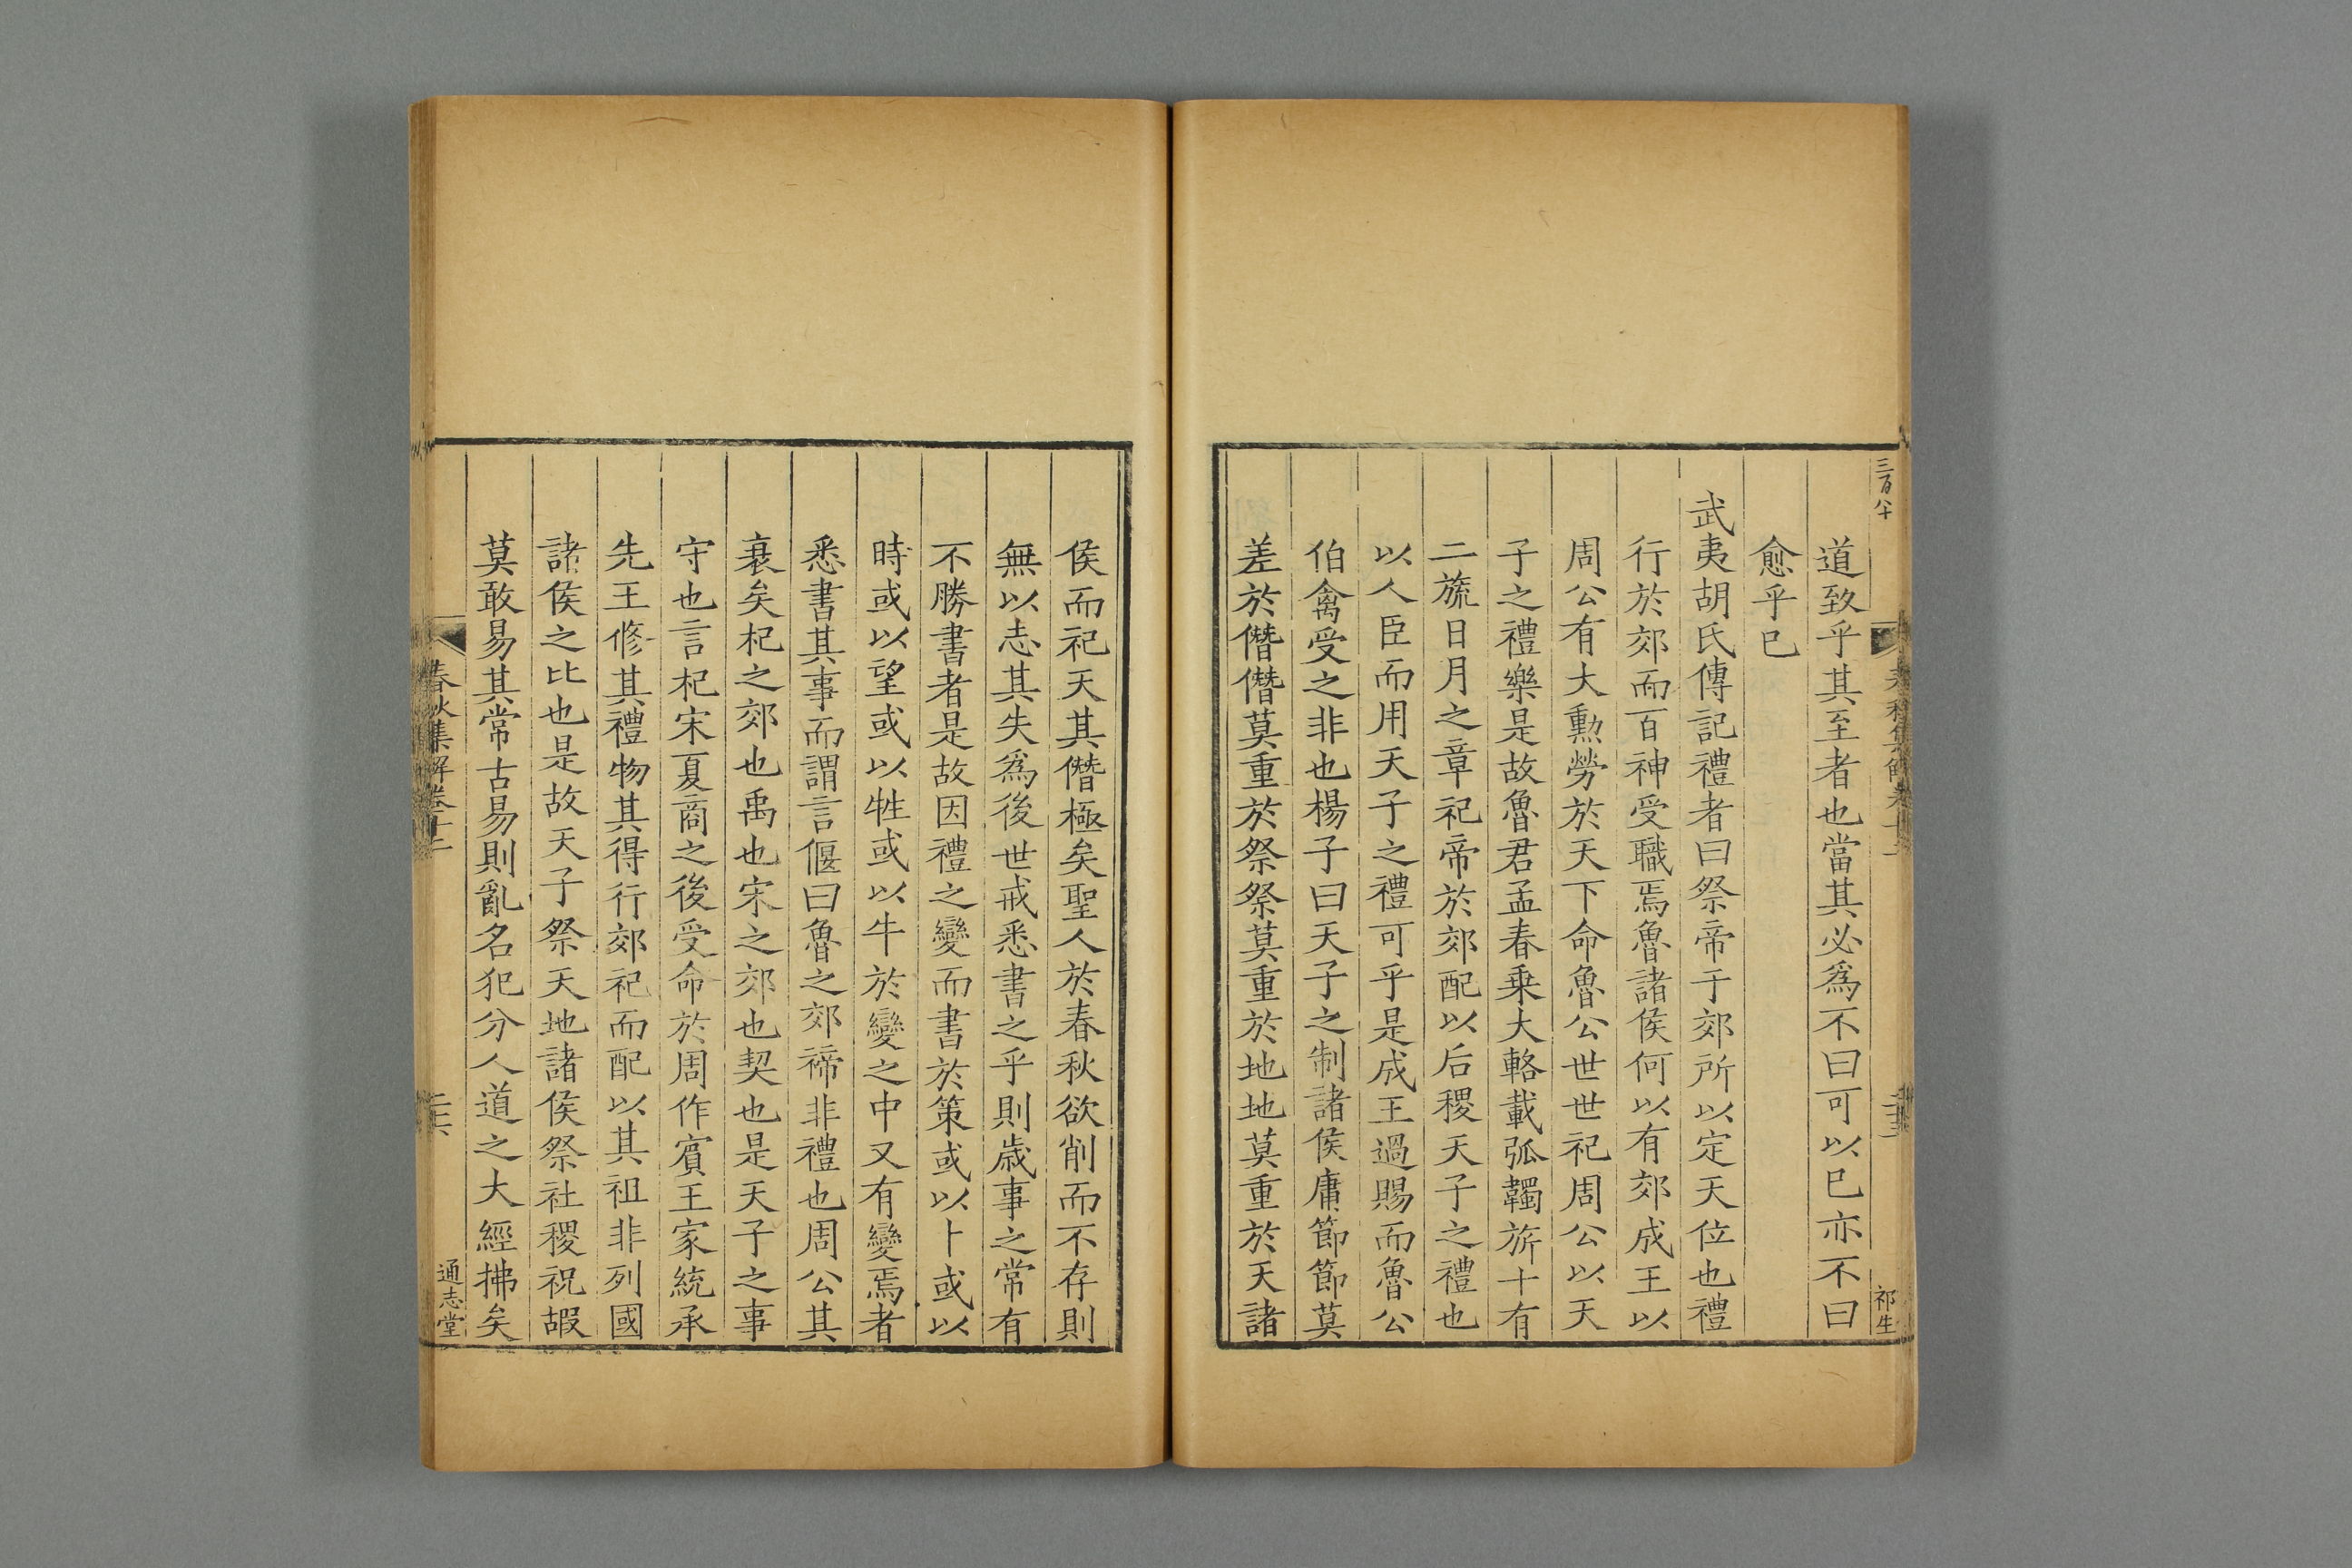 三百八十
春秋集解卷十二
祁生
道致乎其至者也當其必爲不曰可以已亦不曰
愈乎已
武夷胡氏傳記禮者曰祭帝于郊所以定天位也禮
行於郊而百神受職焉魯諸侯何以有郊成王以
周公有大勳勞於天下命魯公世世祀周公以天
子之禮樂是故魯君孟春乗大輅載弧韣旂十有
二旒日月之章祀帝於郊配以后稷天子之禮也
以人臣而用天子之禮可乎是成王過賜而魯公
伯禽受之非也楊子曰天子之制諸侯庸節節莫
差於僭僭莫重於祭祭莫重於地地莫重於天諸
侯而祀天其僭極矣聖人於春秋欲削而不存則
無以志其失爲後世戒悉書之乎則歲事之常有
不勝書者是故因禮之變而書於策或以卜或以
時或以望或以牲或以牛於變之中又有變焉者
悉書其事而謂言偃曰魯之郊禘非禮也周公其
衰矣杞之郊也禹也宋之郊也契也是天子之事
守也言杞宋夏商之後受命於周作賓王家統承
先王修其禮物其得行郊祀而配以其祖非列國
諸侯之比也是故天子祭天地諸侯祭社稷祝嘏
莫敢易其常古易則亂名犯分人道之大經拂矣
春秋集解卷十二
二十六
通志堂